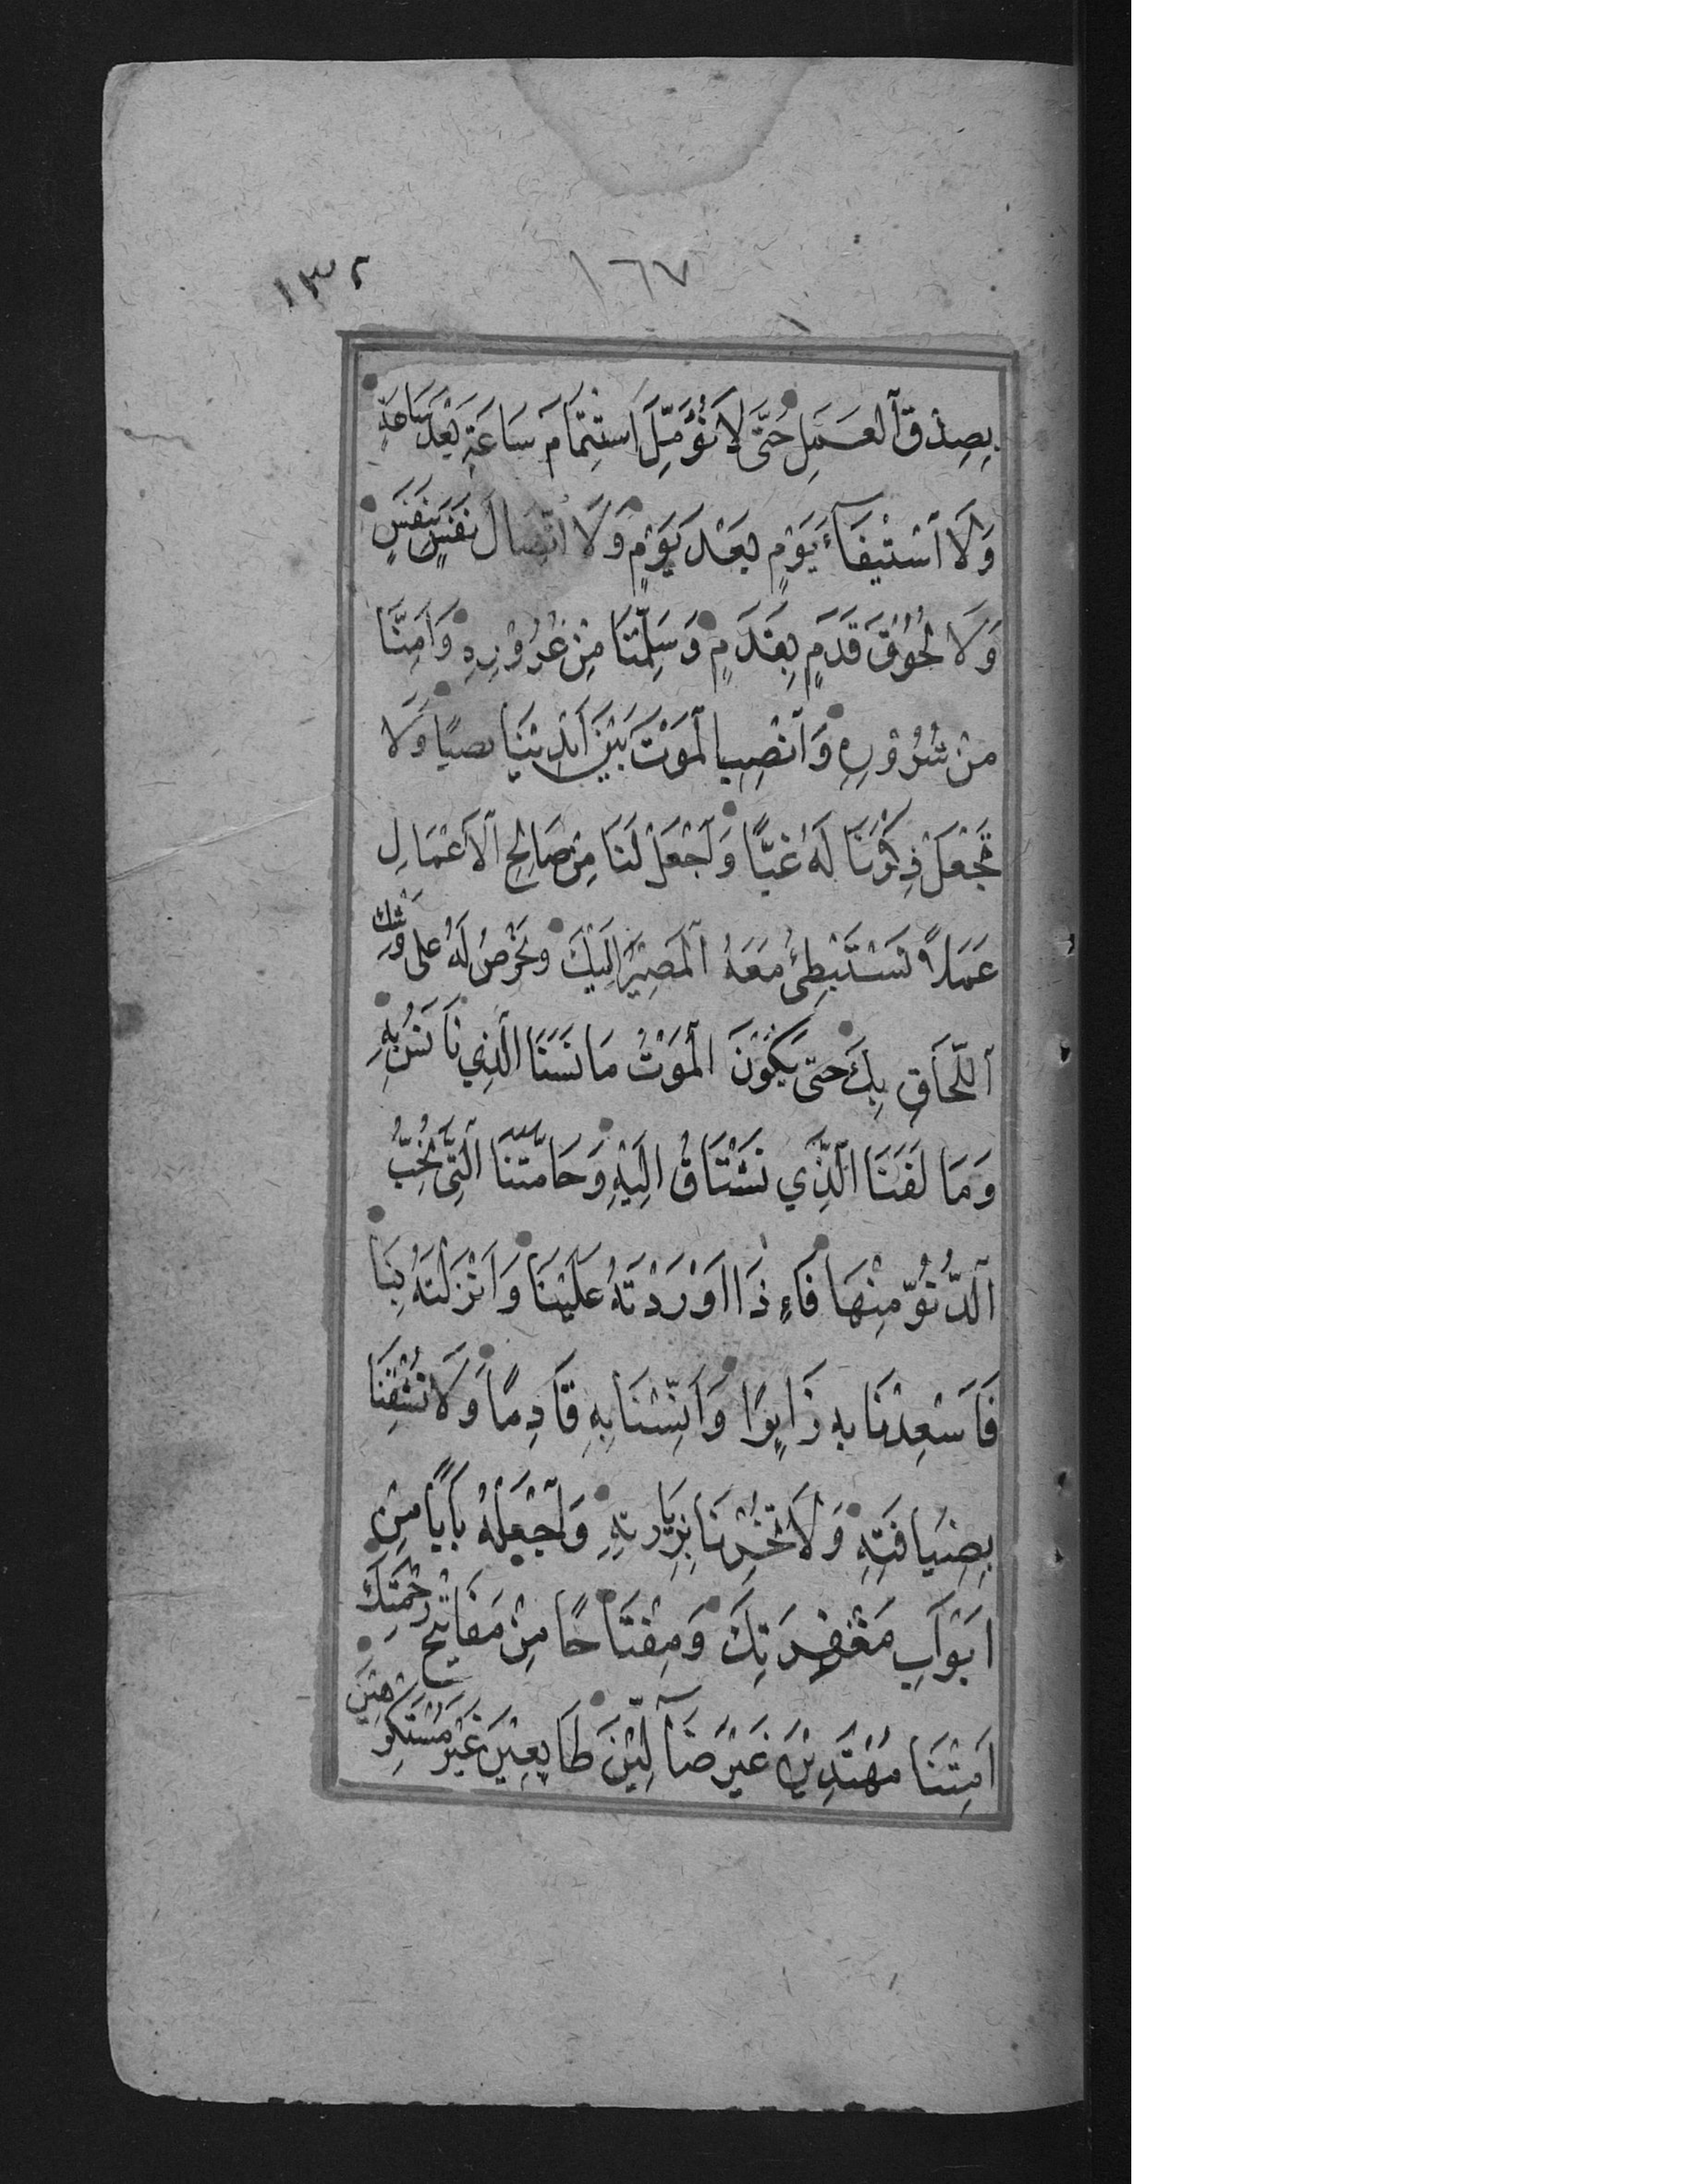 ١٣٢ ١٦٧
بِصِدْقِ ٱلعَمَلِ حَتَّى لَا نُؤَمِّلَ ٱسْتِتْمَامَ سَاعَةٍ بَعْدَ سَاعَةٍ
وَلَا ٱسْتِيفَآءَ يَوْمٍ بَعْدَ يَوْمٍ وَلَا اتِّصَالَ نَفَسٍ بِنَفَسٍ
وَلَا لُحُوْقَ قَدَمٍ بِقَدَمٍ وَسَلِّمْنَا مِنْ غُرُوْرِهِ وَاٰمِنَّا
مِنْ شُرُوْرِهِ وَٱنْصِبِ الْمَوْتَ بَيْنَ اَيْدِيْنَا نصبًا وَلَا
تَجْعَلْ ذِكْرَنَا لَهُ غِبًّا وَٱجْعَلْ لَنَا مِنْ صَالِحِ ٱلْاَعْمَالِ
عَمَلاً نَسْتَبْطِئُ مَعَهُ ٱلْمَصِيْرَ اِلَيْكَ ونَحْرِصُ لَهُ عَلى وَشْكِ
ٱللَّحَاقِ بِكَ حَتى يَكُوْنَ الْمَوْتُ مَانَسَنَا الَّذِي نَانَسُ بِهِ
وَمَا لَفَنَا الَّذِّي نَشْتَاقُ اِلَيْهِ وَحَامَّتَنَا ٱلَّتِى نُحِبُّ
ٱلدُّنُوَّ مِنْهَا فَاءِذَا اَوْرَدْتَهُ عَلَيْنَا وَاَنْزَلْتَهُ بِنَا
فَاَسْعِدْنَا بِهِ زَايِرًا وَاٰنِسْنَا بِهِ قَادِمًا وَلَا تُشْقِنَا
بِضِيَافَتِهِ وَلَا تُخْزِنَا بِزِيَارَتِهِ وَٱجْعَلْهُ بَابًا مِنْ
اَبْوَابِ مَغْفِرَتِكَ وَمِفْتَاحًا مِنْ مَفَاتِيْحِ رَحْمَتِكَ
اَمِتْنَا مُهْتَدِيْنَ غَيْرَ ضَآلِّيْنَ طَايِعِيْنَ غَيْرَ مُسْتَكْرِهِيْنَ